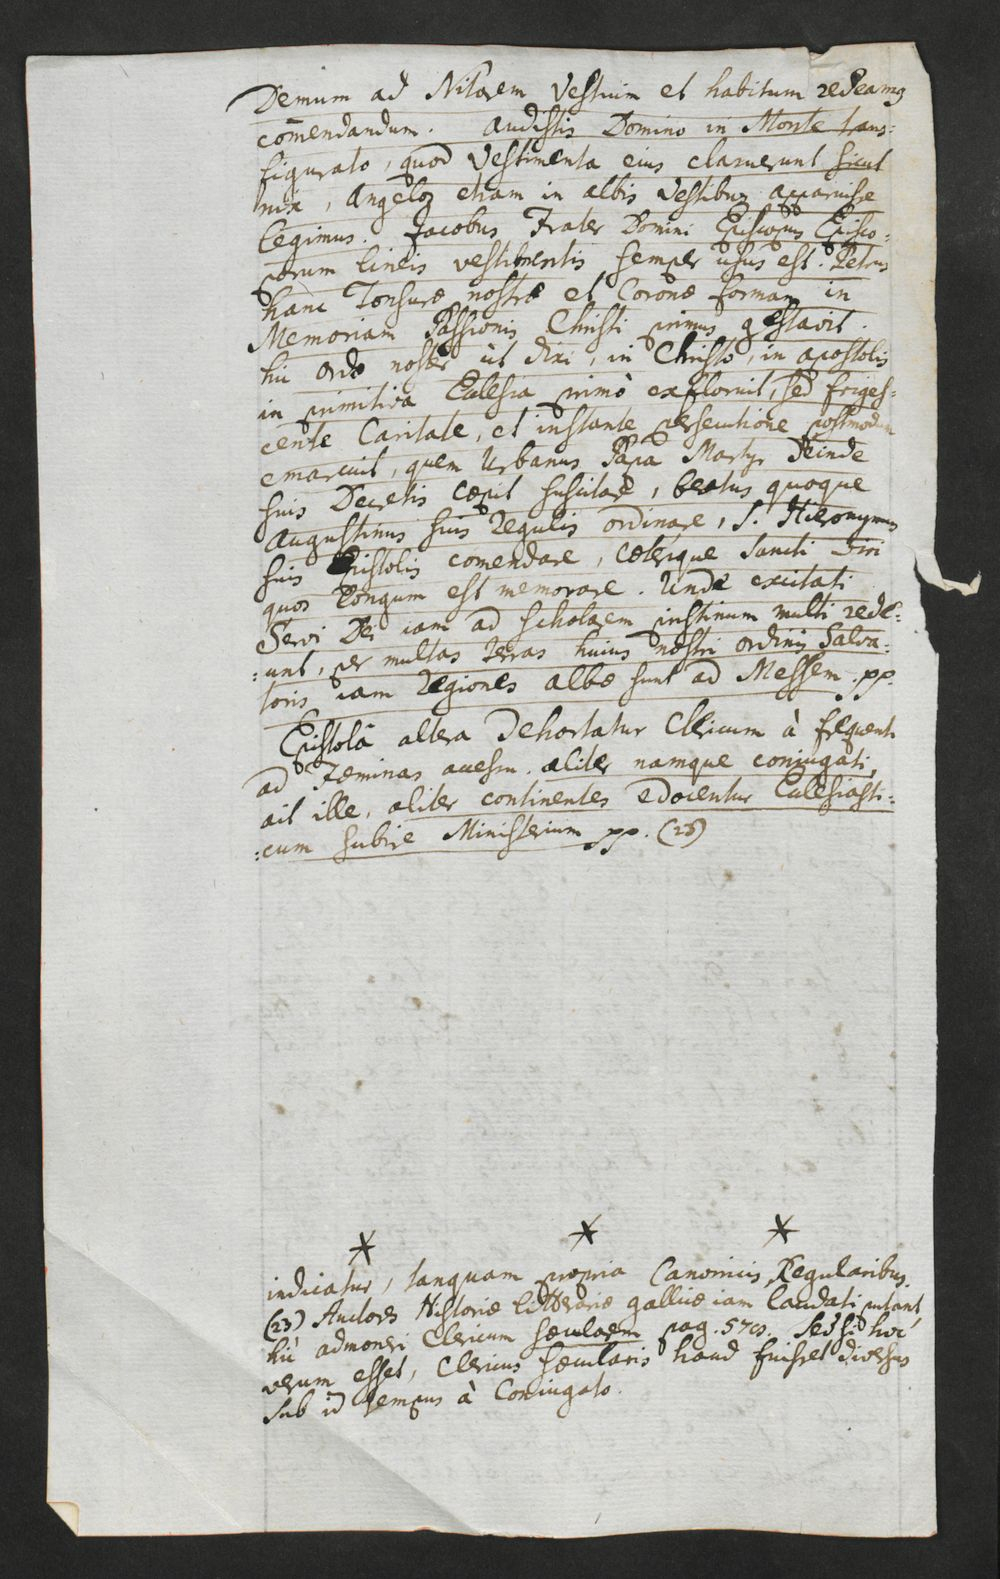 Demum ad Nitorem Vestium et habitum redeamq
com̄endandum. Audistis Domino in Monte trans:
figurato, quod Vestimenta eius claruerunt sicut
nix, Angelos etiam in albis Vestibus apparuisse
legimus. Jacobus Frater Domini Episcopus Episco:
porum lineis vestimentis semper usus est. Petrus
hanc Tonsuræ nostræ et Coronæ formam in
Memoriam Passionis Christi primus gestavit.
hic ordo noster ut dixi, in Christo, in apostolis
in primitiva Eclesia primò exfloruit, sed friges:
cente Caritate, et instante persecutione postmodum
emarcuit, quem Urbanus Papa Martyr Deinde
suis Decretis cœpit suscitare, beatus quoque
Augustinus suis regulis ordinare, S. Hieronymus
suis Epistolis comendare, cæterique Sancti Viri
quos longum est memorare. Unde excitati
Servi Dei iam ad scholarem institutum multi rede:
:unt, per multas terras huius nostri ordinis Salva:
toris iam regiones albæ sunt ad Messem. pp.
Epistola altera Dehortatur Clericum à frequenti
ad Fæminas accessu. aliter namque coniugati,
ait ille, aliter continentes edocentur Eclesiasti:
:cum subire Ministerium pp. (23)
* * *
indicatur, tanquam propria Canonicis Regularibus.
(23) Auctores Historiæ litterariæ galliæ iam laudati putant
hic admoneri Clericum sæcularem pag. 570. Sed si hoc
verum esset, Clericus sæcularis haud fuisset diversus
sub id tempus à Coniugato.